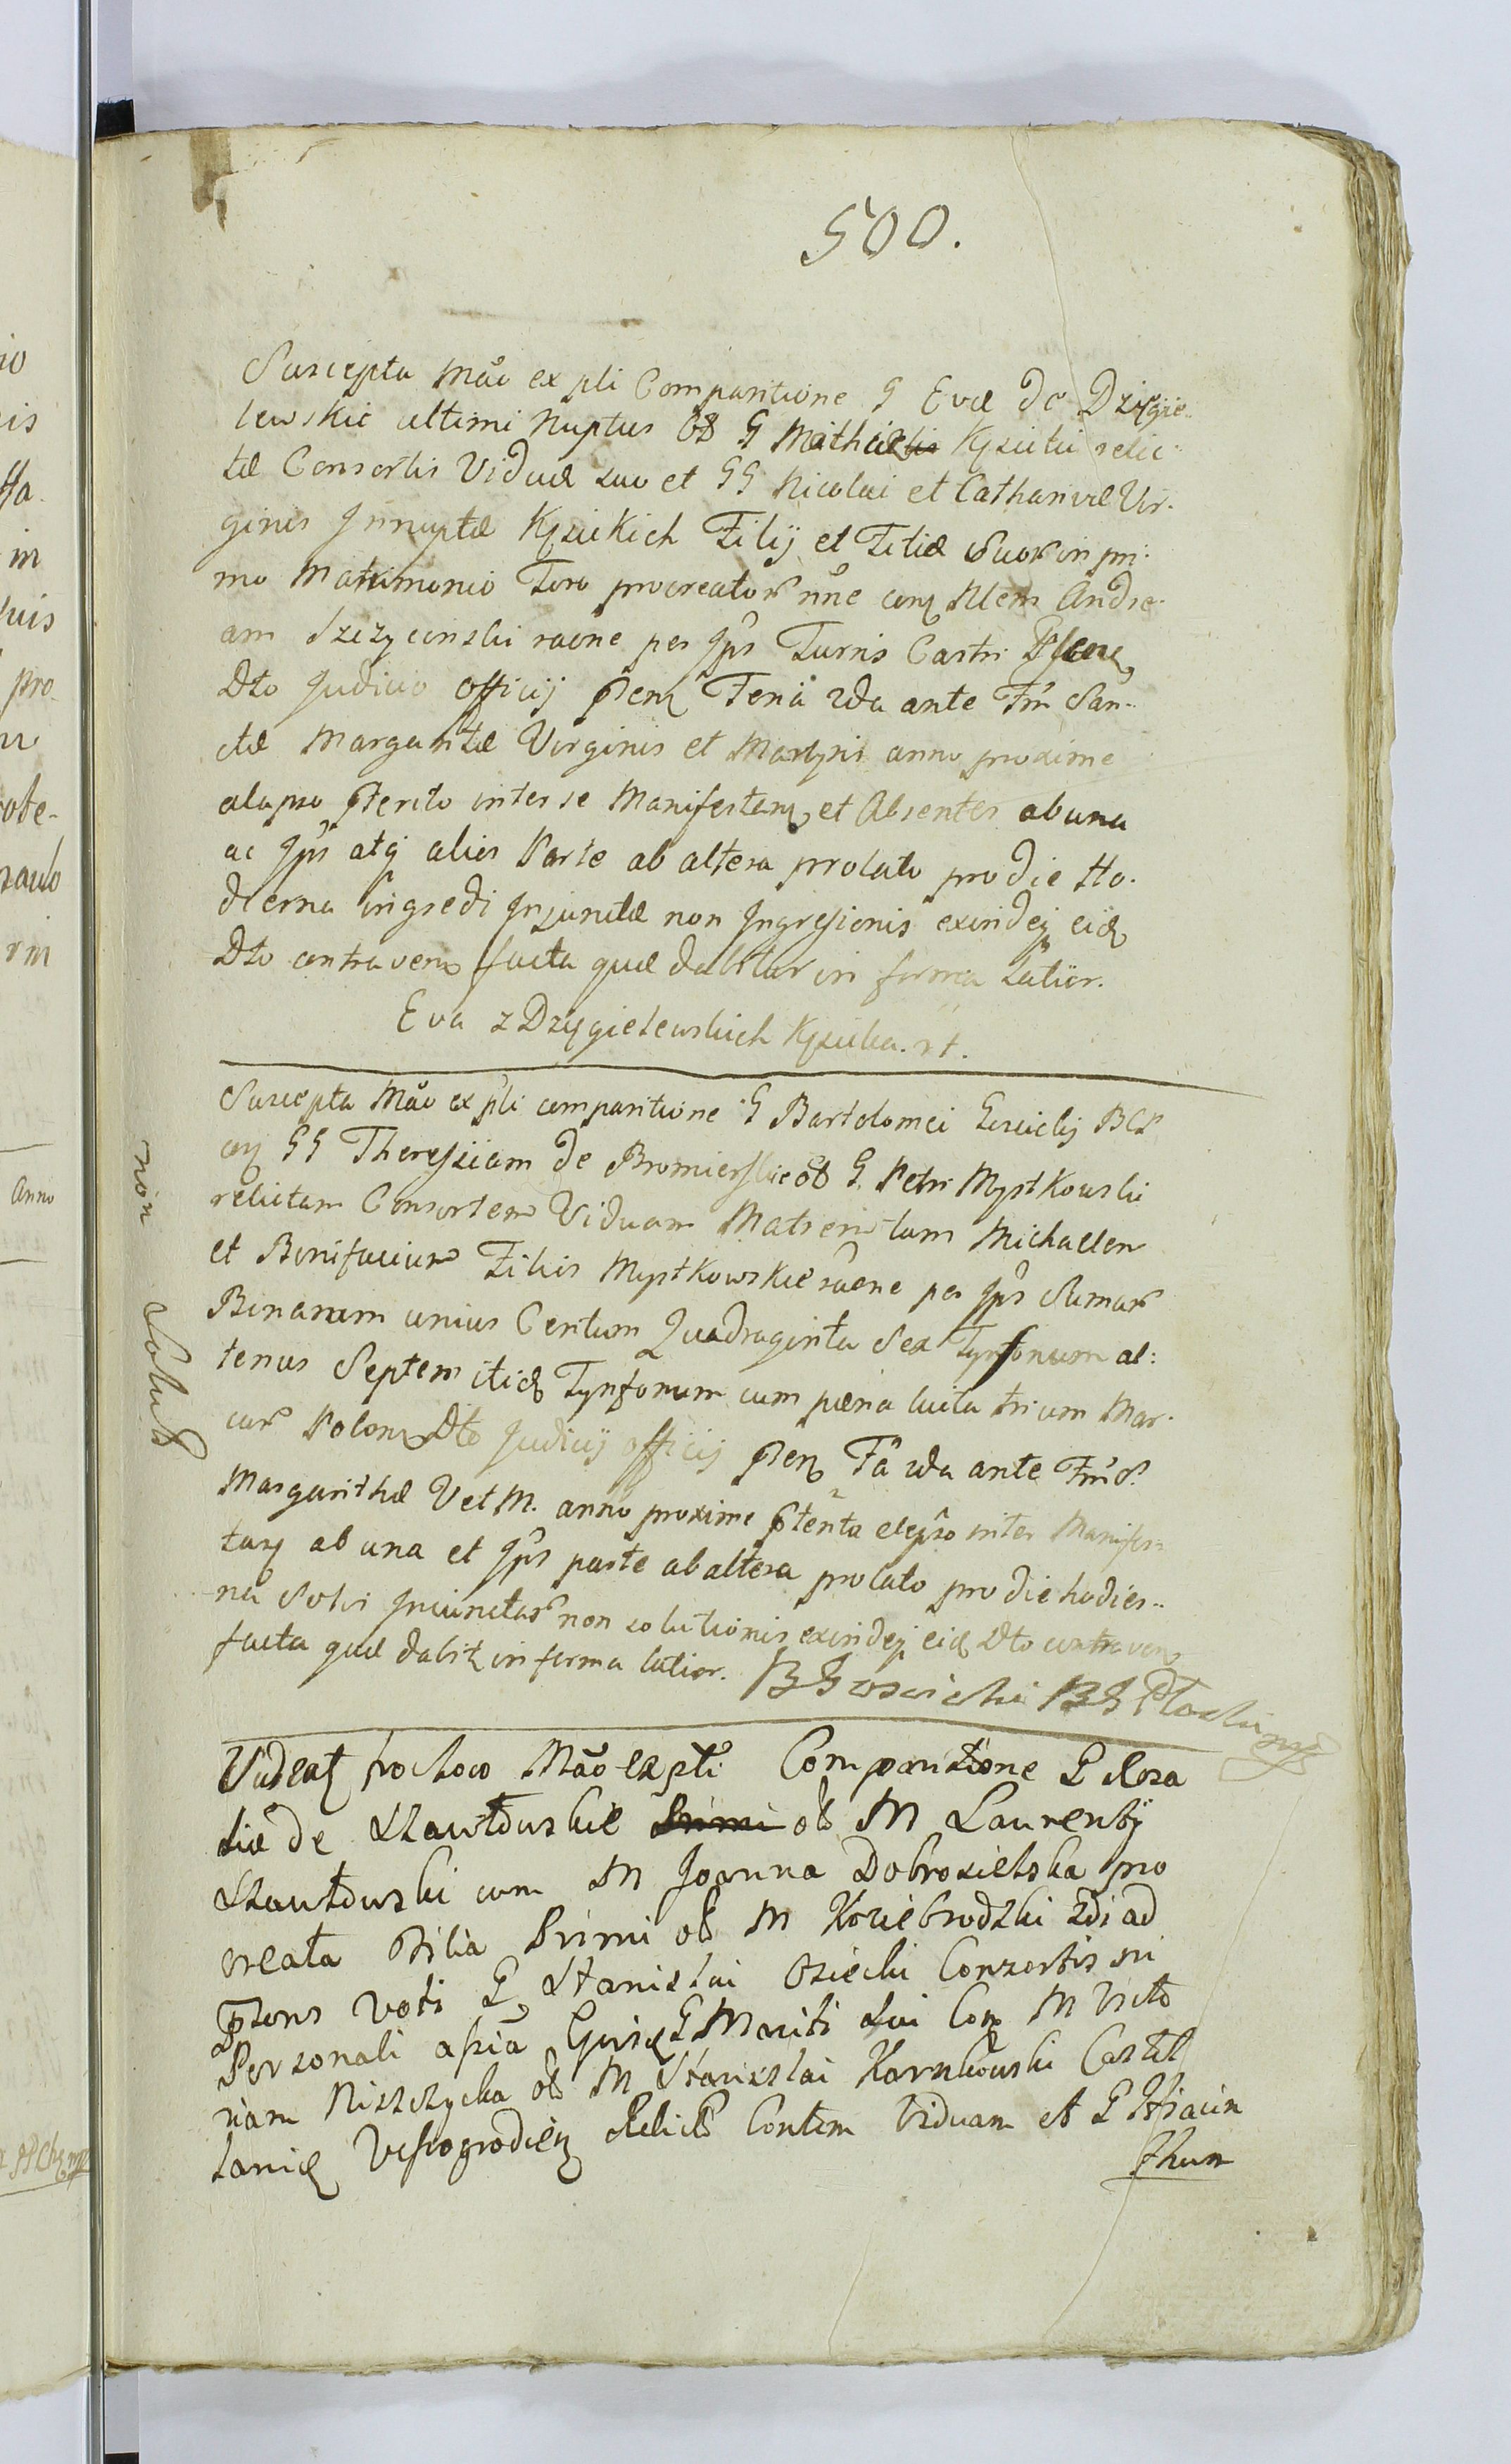 500.
Suscepta Mãe ex pli Comparitione G Evæ de Dzięgie-
lewskie ultimi Nuptus Ob G Mathiæ Kęsicki relic-
tæ Consortis Viduæ suo et GG Nicolai et Catharinæ Vir-
ginis Innuptæ Kęsickich Filij et Filiæ Suor in pri-
mo Matrimonio Toro procreator nñe cum Nlem Andre-
am Szczycinski raõne per Ips Turris Castri
Dto Judicio Officij Fena 2da ante Fm San-
ctæ Margaritæ Virginis et Martyris anno proxime
elapso pterito inter se Manifestem et Absentes ab una
ac Ips atq alios Parte ab altera prolato pro die Ho-
dierna ingredi Injunctæ non Ingressionis exindeq eid
Dto contraven facta quæ dabitur in forma Latior.
Eva z Dzięgielewskich Kęsicka. rt.
Suscepta Mão ex pli comparitione G Bartolomei BCP
cum GG Theressiam de Bromierskie ob G Petri Mystkowski
relictam Consortem Viduam Matrem tum Michaelem
et Bonifacium Filios Mystkowskie raõne per Ips Sumar
Binarum unius Centum Quadraginta Sex Tynfonum al:
terius Septem itid Tynfonum cum pæna luita trium Mar-
car Polon Dto Judicij officij Fa 2da ante Fm S.
Margarithæ V et M. anno proxime ptento elapso inter Manifes-
tum ab una et Ips parte ab altera prolato pro die hodier-
na Solvi Injunctar non solutionis exindeq eid Dto contraven
facta quæ dabit in forma latior. BG
non Solut
Videat hoc loco Mão ex pli Comparitione G Rosa
liæ de Szawłowskie ob M Laurentij
Szawłowski cum M Joanna Dobrosielska pro
creata Filia Primi ob M Koziebrodzki 2di ad
pñns Voti G Stanislai Osiecki Consortis in
Personali assña G Mariti Sui Con M Victo
riam Niszczycka ob M Stanislai Karnkowski Castel
lani Wyszogrodien Relict Contem Viduam et G Hiacin
thum
Anno